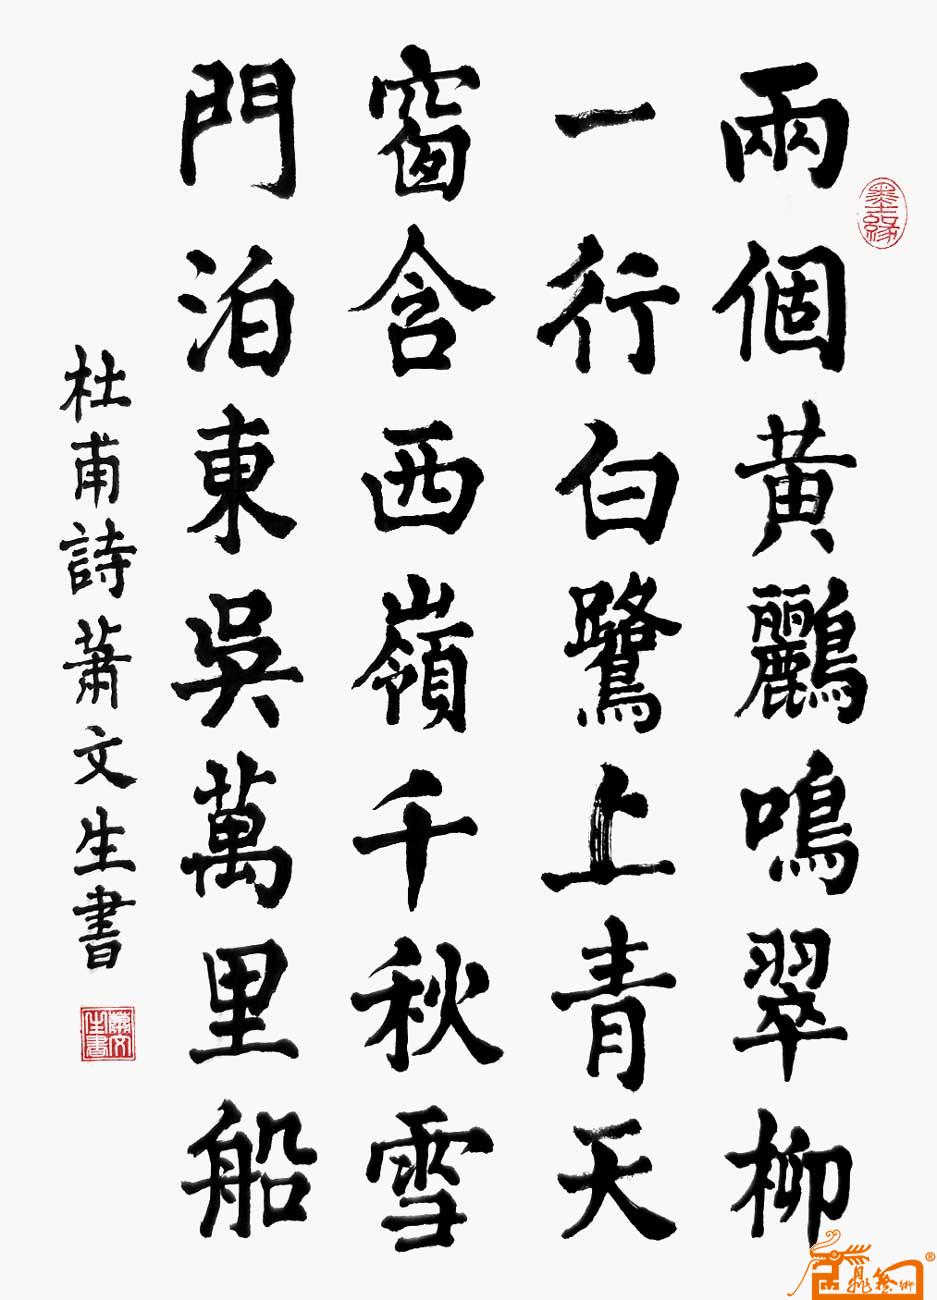 兩個黃鸝鳴翠柳
一行白鷺上青天
窗含西嶺千秋雪
門泊東吳萬里船
杜甫詩蕭文生書
墨緣
蕭文生書